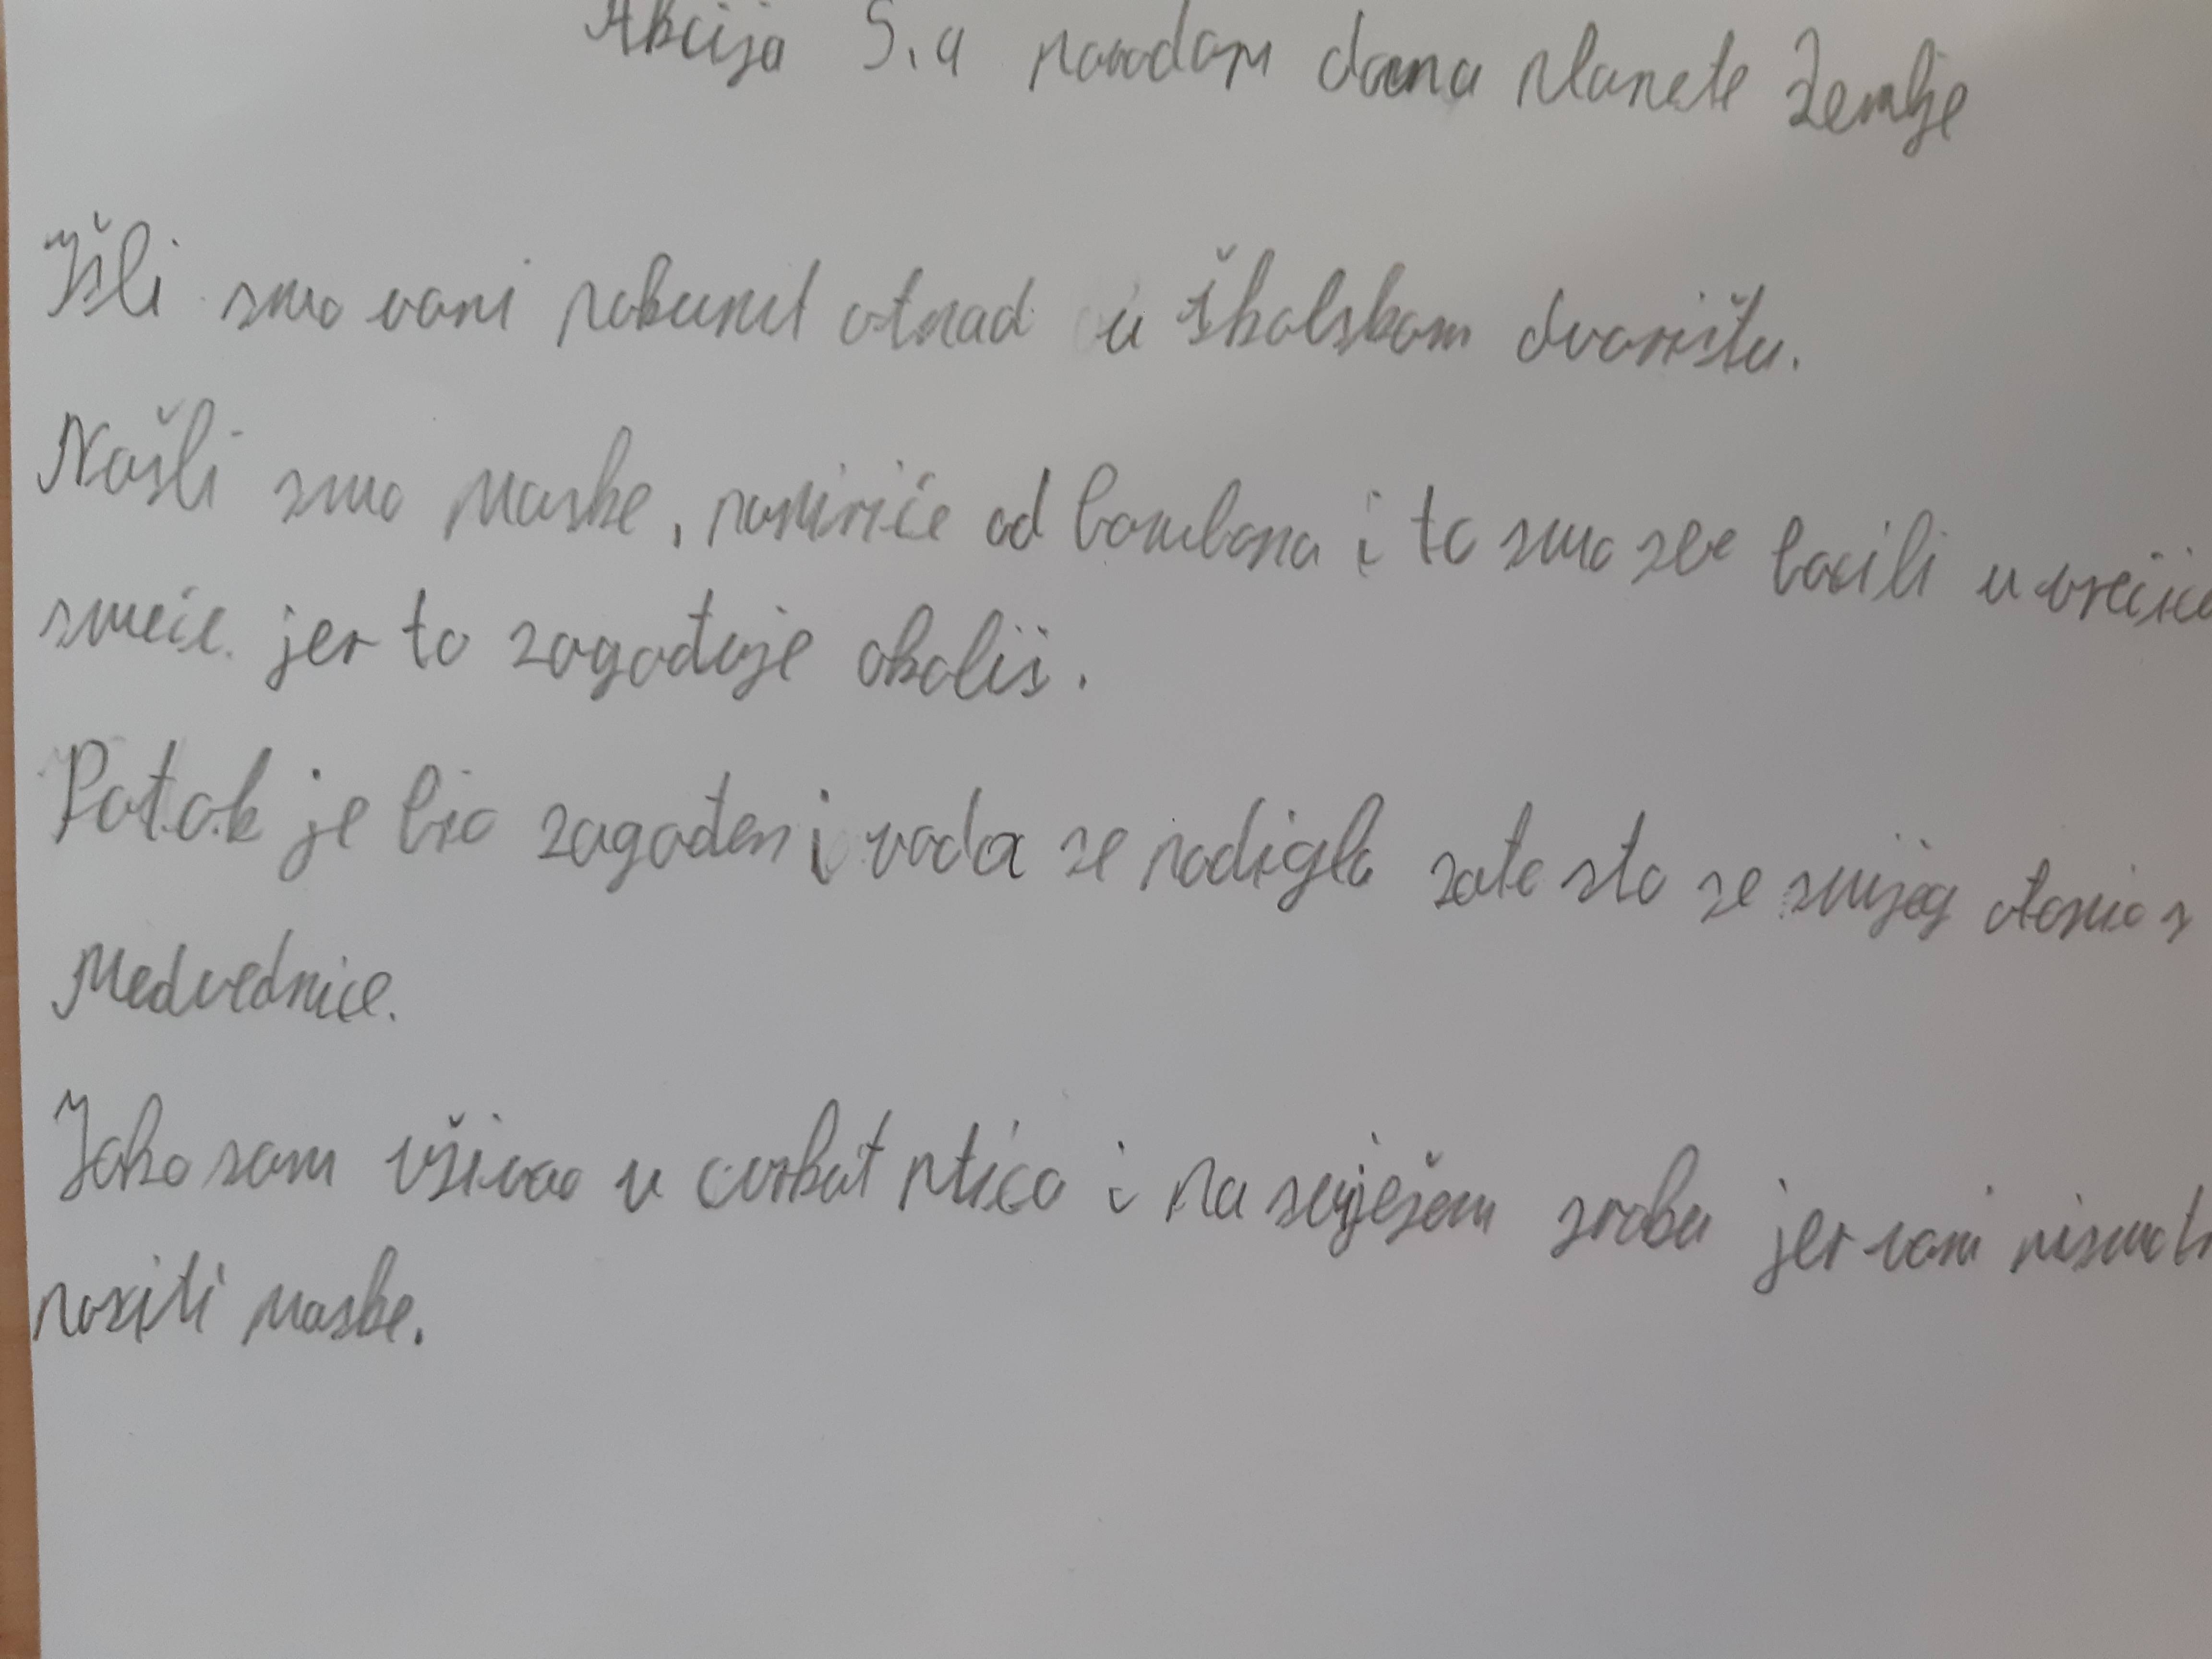 Akcija 5.a povodom dana planete Zemlje
Išli smo vani pokupit otpad u školskom dvorištu.
Našli smo maske, papiriće od bombona i to smo sve bacili u vrećice
smeće. jer to zagađuje okoliš.
Potok je bio zagađen i voda se podigla zato sto se snijeg otopio s
Medvednice.
Jako sam uživao u cvrkut ptica i na svježem zraku jer vani nismo
nositi maske.